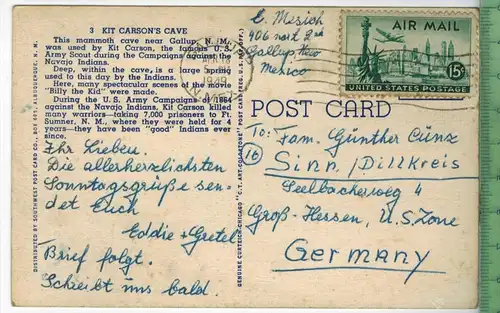 3 KIT CARSON'S CAVE
This mammoth cave near Gallup, N. M.,
was used by Kit Carson, the famous U.S.
Army Scout during the Campaigns against the
Navajo Indians.
Deep, within the cave, is a large spring
used to this day by the Indians.
Here, many spectacular scenes of the movie
"Billy the Kid" were made.
During the U.S. Army Campaigns of 1864
against the Navajo Indians, Kit Carson killed
many warriors—taking 7,000 prisoners to Ft.
Sumner, N. M., where they were held for 4
years—they have been "good" Indians ever
since.
Ihr Lieben.
Die allerherzlichsten
Sonntagsgrüße sen-
det Euch
Eddie + Gretel
Brief folgt.
Schreibt uns bald.
DISTRIBUTED BY SOUTHWEST POST CARD CO., BOX 685, ALBUQUERQUE, N. M.
GENUINE CURTEICH-CHICAGO "C.T. ART-COLORTONE" POST CARD (REG. U.S. PAT. OFF.)
1949
906 nort 2nd
Gallup New
Mexico
AIR MAIL
15¢
UNITED STATES POSTAGE
POST CARD
To: Fam. Günther Cunz
(16) Sinn/Dillkreis
Seelbacherweg 4
Groß-Hessen, U.S. Zone
Germany